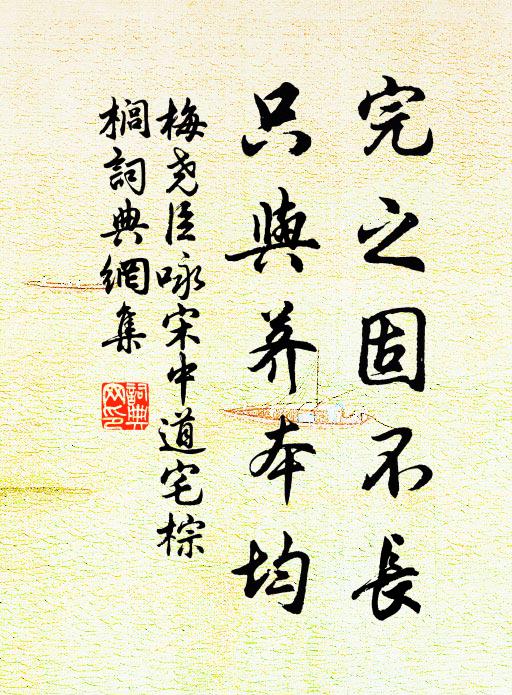 完之固不長
只與荠本均
梅尧臣咏宋中道宅棕
榈詞典網集
詞典
网印